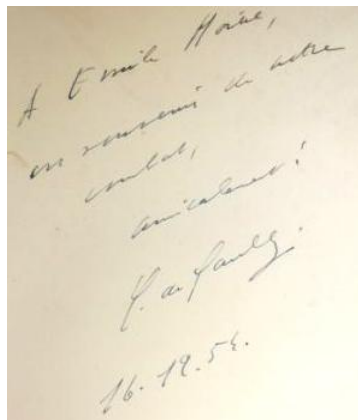 A Emile Moine,
en souvenir de notre
combat,
amicalement!
C. de Gaulle.
16.12.54.